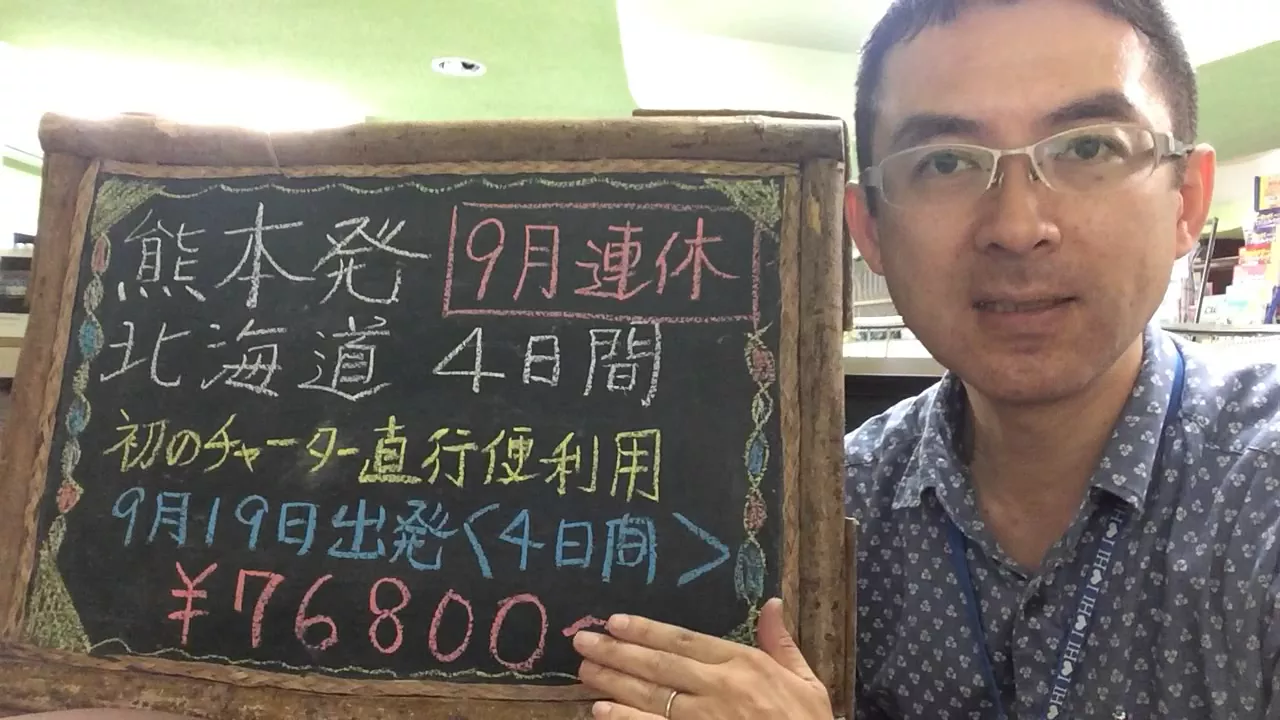 熊本発 9月連休
北海道 4日間
初のチャーター直行便利用
9月19日出発〈4日間〉
¥76800〜
I♡HI I♡HI